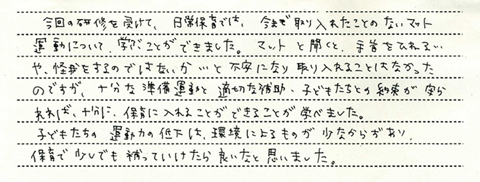 今回の研修を受けて、日常保育では、今まで取り入れたことのないマット
運動について、学ぶことができました。マットと聞くと、手首をひねるい
や、怪我をするのではないか…と不安になり取り入れることはなかった
のですが、十分な準備運動と適切な補助、子どもたちとの約束が守ら
れれば、十分に、保育に入れることができることが学べました。
子どもたちの運動力の低下は、環境によるものが少なからずあり、
保育で少しでも補っていけたら良いなと思いました。